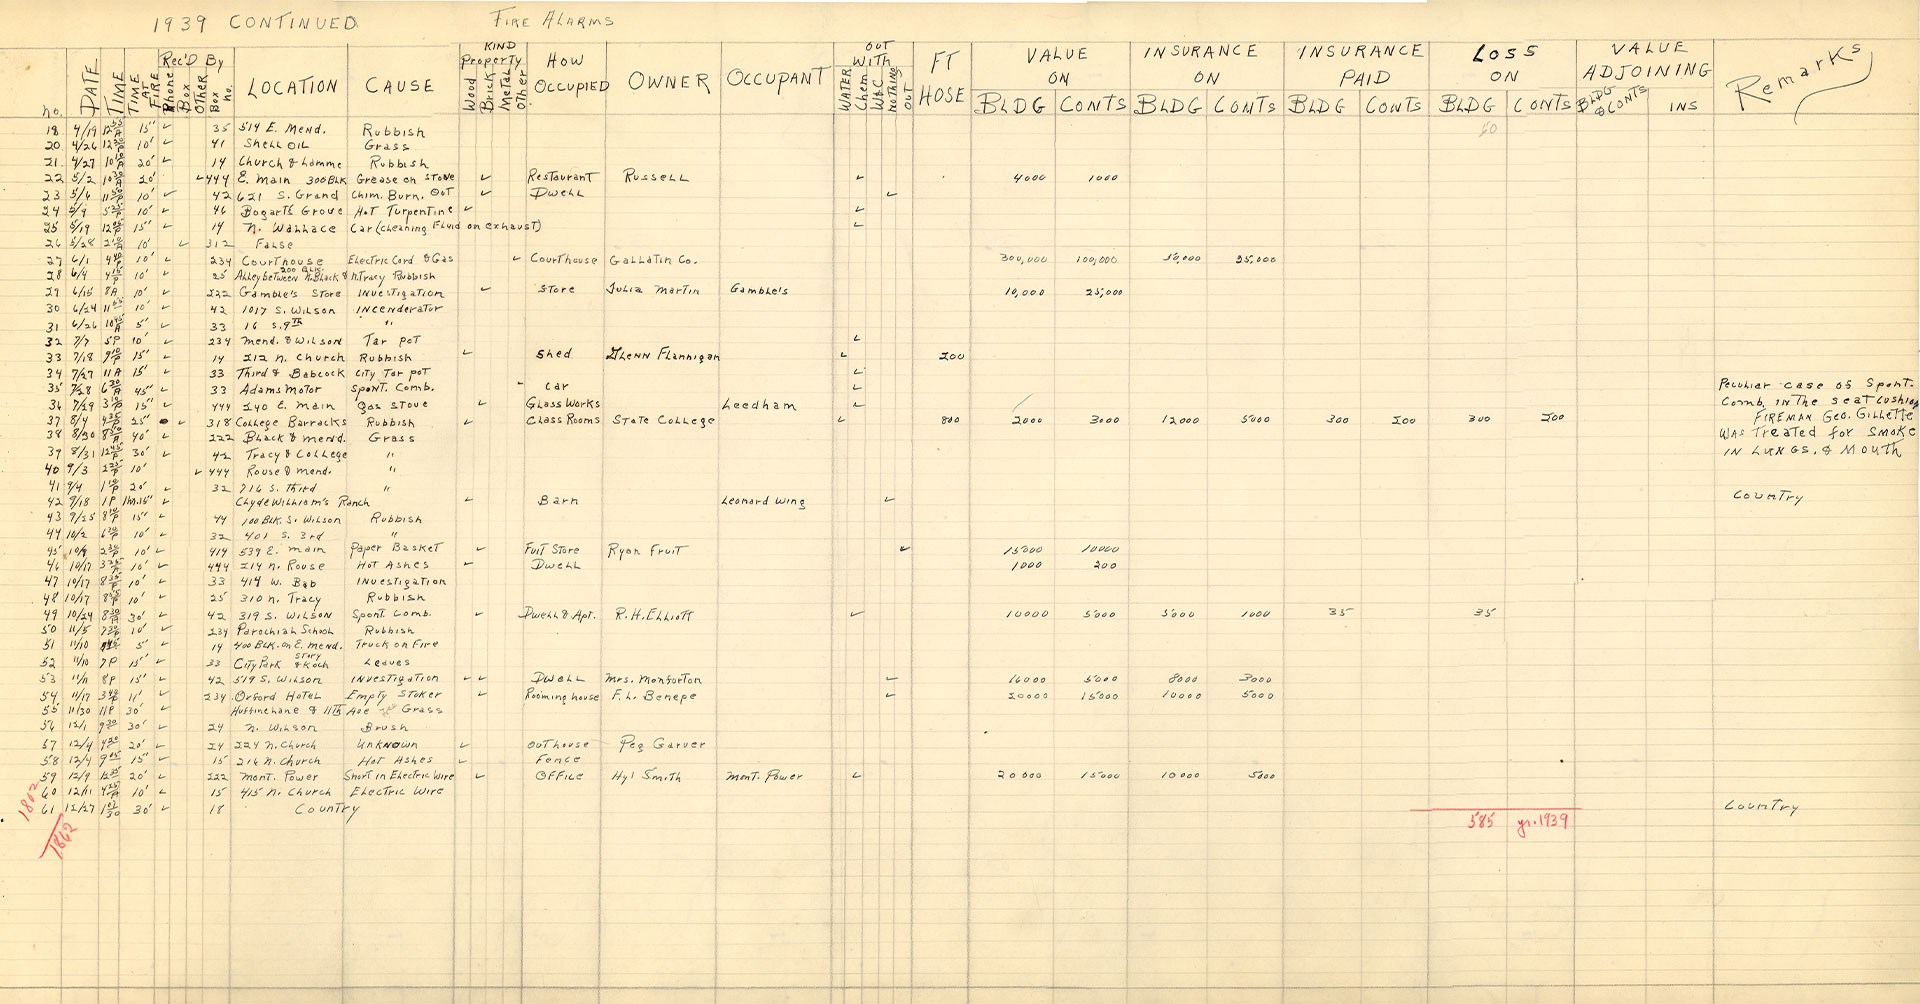 1939 CONTINUED FIRE ALARMS
no. DATE TIME TIME AT FIRE Rec'D By Phone Box Other Box no. LOCATION CAUSE KIND Property Wood Brick Metal Other How OCCUPIED OWNER OCCUPANT OUT With WATER Chem W&C nothing out FT HOSE VALUE ON BLDG CONTS INSURANCE ON BLDG CONTS INSURANCE PAID BLDG CONTS LOSS ON BLDG CONTS VALUE ADJOINING BLDG & CONTS INS Remarks
18 4/19 15" 35 514 E. Mend. Rubbish 50
20 4/26 10' 41 Shell Oil Grass
21 4/27 20' 14 Church & Lamme Rubbish
22 5/2 20' 444 E. Main 300 Blk Grease on Stove Restaurant Russell 4000 1000
23 5/6 10' 42 621 S. Grand Chim. Burn. Out Dwell
24 5/9 10' 46 Bogart's Grove Hot Turpentine
25 5/19 15" 14 N. Wallace Car (cleaning Fluid on exhaust)
26 5/28 10' 312 False
27 6/1 10' 234 Courthouse Electric Cord & Gas Courthouse Gallatin Co. 300,000 100,000 50,000 25,000
28 6/4 10' 25 Alley between 200 Blk. N. Black & N. Tracy Rubbish
29 6/15 8A 10' 222 Gamble's Store Investigation Store Julia Martin Gamble's 10,000 25,000
30 6/24 10' 42 1017 S. Wilson Incenderator
31 6/26 5' 33 16 S. 9TH "
32 7/7 5P 10' 234 Mend. & Wilson Tar pot
33 7/18 15" 14 212 N. Church Rubbish Shed Glenn Flannigan 200
34 7/27 11 A 15' 33 Third & Babcock City Tar pot
35 7/28 45" 33 Adams Motor Spont. Comb. Car Peculiar case of Spont. Comb. in the seat cushion
36 7/29 15" 444 240 E. Main Gas Stove Glass Works Leedham
37 8/4 25' 318 College Barracks Rubbish Class Rooms State College 800 2000 3000 12000 5000 300 200 300 200 FIREMAN Geo. Gillette was treated for smoke in Lungs. & Mouth
38 8/30 40' 222 Black & Mend. Grass
39 8/31 30' 42 Tracy & College "
40 9/3 10' 444 Rouse & Mend. "
41 9/4 20' 32 716 S. Third "
42 9/18 1P 1hr. 15" Clyde William's Ranch Barn Leonard Wing Country
43 9/25 15" 44 100 Blk. S. Wilson Rubbish
44 10/2 10' 32 401 S. 3rd "
45 10/9 10' 414 539 E. Main Paper Basket Fuit Store Ryan Fruit 15000 10000
46 10/17 10' 444 214 N. Rouse Hot Ashes Dwell 1000 200
47 10/17 10' 33 414 W. Bab Investigation
48 10/17 10' 25 310 N. Tracy Rubbish
49 10/24 30' 42 319 S. Wilson Spont. Comb. Dwell & Apt. R.H. Elliott 10000 5000 5000 1000 35 35
50 11/5 10' 234 Parochial School Rubbish
51 11/10 5' 14 400 Blk. on E. Mend. Truck on Fire
52 11/10 7P 15" 33 City Park Story & Koch Leaves
53 11/11 8P 15" 42 519 S. Wilson Investigation Dwell Mrs. Monforton 16000 5000 8000 3000
54 11/17 11' 234 Oxford Hotel Empty Stoker Rooming house F.L. Benepe 20000 15000 10000 5000
55 11/30 11P 30' Huffinehane & 11Th Ave Grass
56 12/1 30' 24 N. Wilson Brush
57 12/4 20' 24 224 N. Church Unknown Outhouse Peg Garver
58 12/4 15" 15 216 N. Church Hot Ashes Fence
59 12/9 20' 222 Mont. Power Short in Electric Wire Office Hyl Smith Mont. Power 20000 15000 10000 5000
60 12/11 10' 15 415 N. Church Electric Wire
61 12/27 30' 18 Country Country
1802
1862
585 yr. 1939